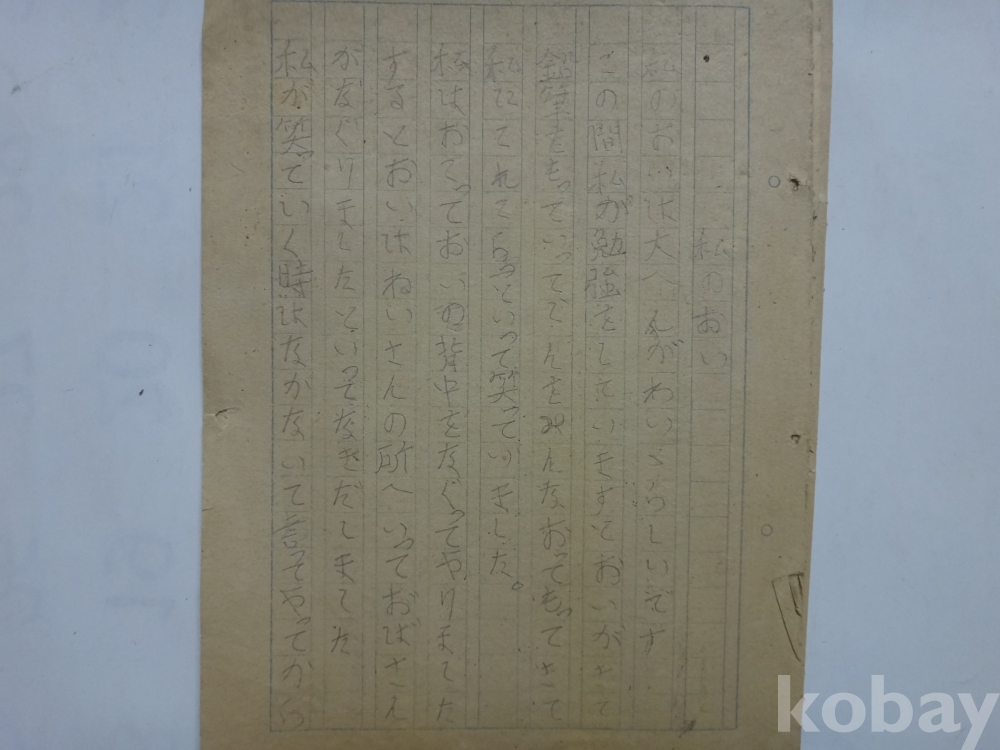 私のおい
私のおいは大へんがわいゝらしいです
この間私が勉強をしていますとおいがきて
鉛筆をもっていってしんをみんなおってもってきて
私にこれこらっといって笑っていました。
私はおこっておいの背中をなぐってやりました
するとおいはねいさんの所へいっておばさん
がなぐりましたといってなきだしました
私が笑っていく時はなかないて言ってやってから
kobay